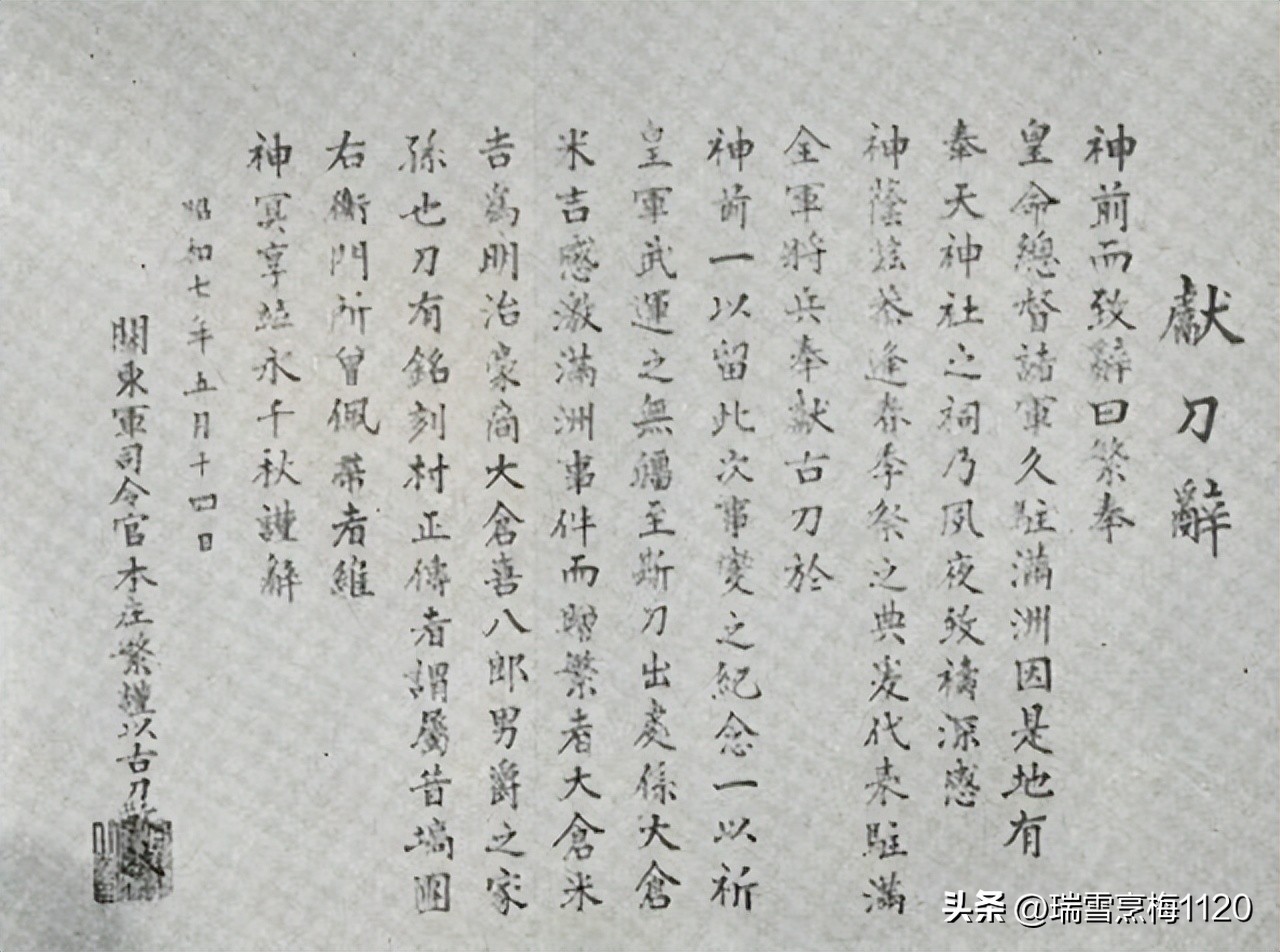 獻刀辭
神前而致辭曰繁奉
皇命總督諸軍久駐滿洲因是地有
奉天神社之祠乃夙夜致禱深感
神蔭茲恭逢春季祭之典爰代表駐滿
全軍將兵奉獻古刀於
神前一以留此次事變之紀念一以祈
皇軍武運之無疆至斯刀出處係大倉
米吉感激滿洲事件而贈繁者大倉米
吉為明治豪商大倉喜八郎男爵之家
孫也刀有銘刻村正傳者謂屬昔塙團
右衛門所曾佩帶者維
神冥享並永千秋謹辭
昭和七年五月十四日
關東軍司令官本庄繁謹以古刀獻
头条 @瑞雪烹梅1120